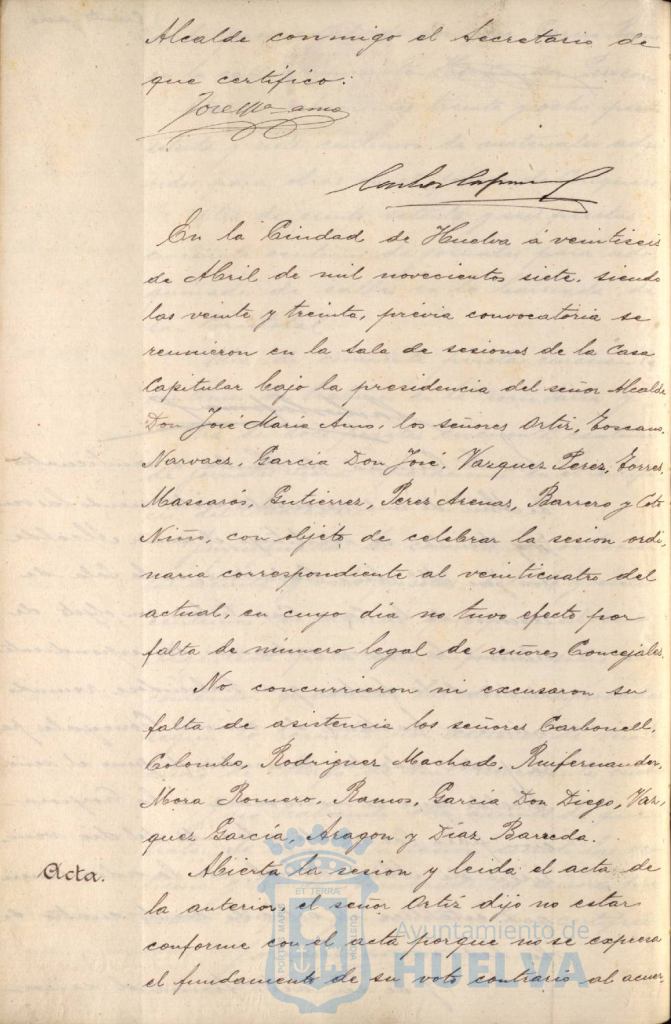 Alcalde conmigo el Secretario de
que certifico:
José Mª Amo
En la Ciudad de Huelva á veintiseis
de Abril de mil novecientos siete, siendo
las veinte y treinta, prévia convocatoria se
reunieron en la sala de sesiones de la Casa
Capitular bajo la presidencia del señor Alcalde
Don José Maria Amo, los señores Ortiz, Toscano,
Narvaez, García Don José, Vazquez Perez, Torres,
Mascarós, Gutiérrez, Perez Arenas, Barrero y Coto
Niño, con objeto de celebrar la sesion ordi-
naria correspondiente al veinticuatro del
actual, en cuyo dia no tuvo efecto por
falta de número legal de señores Concejales.
No concurrieron ni excusaron su
falta de asistencia los señores Carbonell,
Colombo, Rodriguez Machado, Ruifernandez,
Mora Romero, Ramos, García Don Diego, Vaz-
quez García, Aragon y Díaz Barreda.
Acta.
Abierta la sesion y leida el acta de
la anterior, el señor Ortiz dijo no estar
conforme con el acta porque no se expresa
el fundamento de su voto contrario al acuer-
ET TERRÆ
PORTUS MARIS
CUSTODIA
Ayuntamiento de
HUELVA